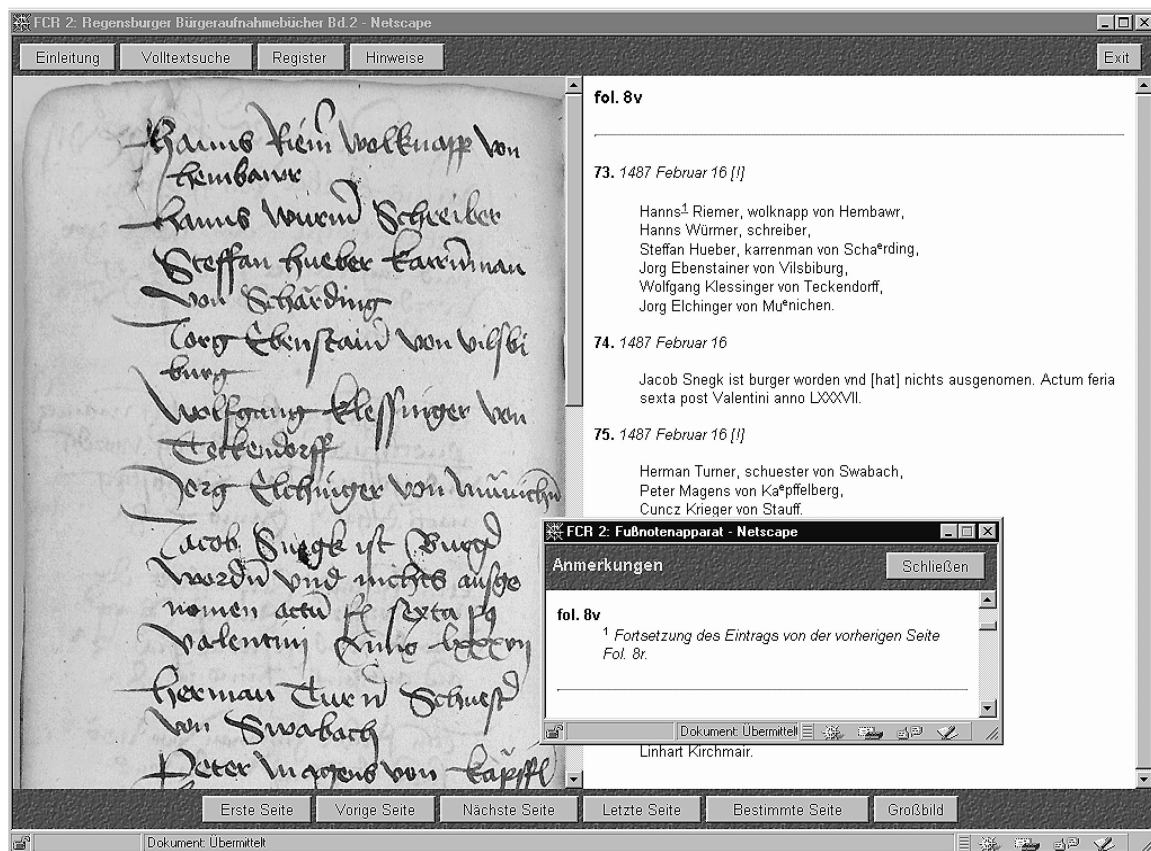 FCR 2: Regensburger Bürgeraufnahmebücher Bd.2 - Netscape
Einleitung Volltextsuche Register Hinweise Exit
Hanns Riem̄ wolknapp von
hembawr
Hanns wurm̄ Schreiber
Steffan hueber karrn̄man
von Schärding
Jorg Ebenstain̄ von vilsbi
burg
Wolfgang klessinger von
Teckendorff
Jorg Elchinger von
Jacob Snegk ist
wordn̄ vnd nichts ausge
nomen actū sexta
valentini Anno lxxxvij
herman Turn̄
von Swabach
Peter magens von
fol. 8v
73. 1487 Februar 16 [!]
Hanns¹ Riemer, wolknapp von Hembawr,
Hanns Würmer, schreiber,
Steffan Hueber, karrenman von Schaᵉrding,
Jorg Ebenstainer von Vilsbiburg,
Wolfgang Klessinger von Teckendorff,
Jorg Elchinger von Muᵉnichen.
74. 1487 Februar 16
Jacob Snegk ist burger worden vnd [hat] nichts ausgenomen. Actum feria
sexta post Valentini anno LXXXVII.
75. 1487 Februar 16 [!]
Herman Turner, schuester von Swabach,
Peter Magens von Kaᵉpffelberg,
Cuncz Krieger von Stauff.
FCR 2: Fußnotenapparat - Netscape
Anmerkungen Schließen
fol. 8v
¹ Fortsetzung des Eintrags von der vorherigen Seite
Fol. 8r.
Dokument: Übermittelt
Linhart Kirchmair.
Erste Seite Vorige Seite Nächste Seite Letzte Seite Bestimmte Seite Großbild
Dokument: Übermittelt